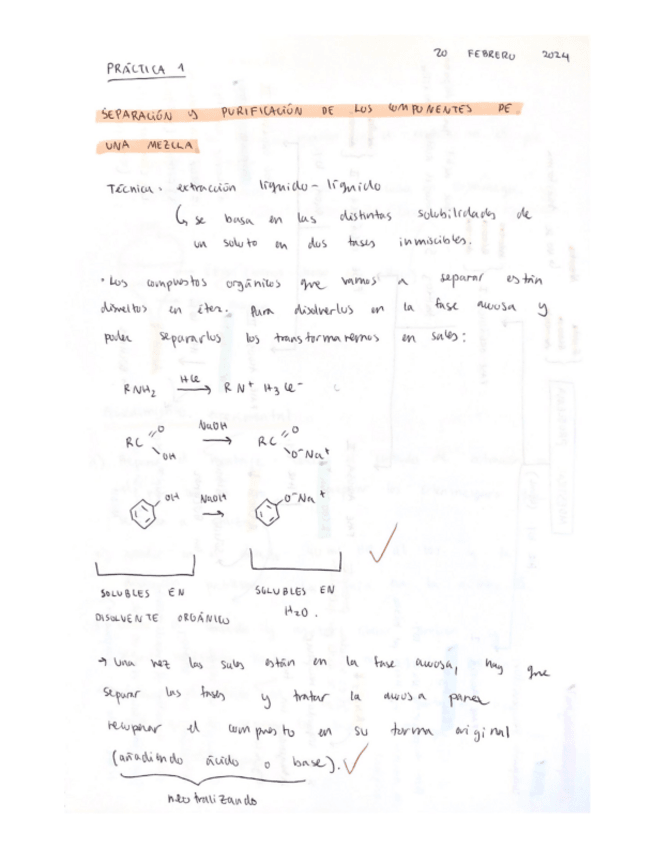 20 FEBRERO 2024
PRÁCTICA 1
SEPARACIÓN Y PURIFICACIÓN DE LOS COMPONENTES DE
UNA MEZCLA
Técnica: extracción líquido-líquido
↳ se basa en las distintas solubilidades de
un soluto en dos fases inmiscibles.
· Los compuestos orgánicos que vamos a separar están
disueltos en éter. Para disolverlos en la fase acuosa y
poder separarlos los transformaremos en sales:
RNH₂ HCl → RN⁺H₃Cl⁻
RC=O OH NaOH → RC=O O⁻Na⁺
OH NaOH → O⁻Na⁺
SOLUBLES EN
DISOLVENTE ORGÁNICO
SOLUBLES EN
H₂O.
→ Una vez las sales están en la fase acuosa, hay que
separar las fases y tratar la acuosa para
recuperar el compuesto en su forma original
(añadiendo ácido o base).
neutralizando